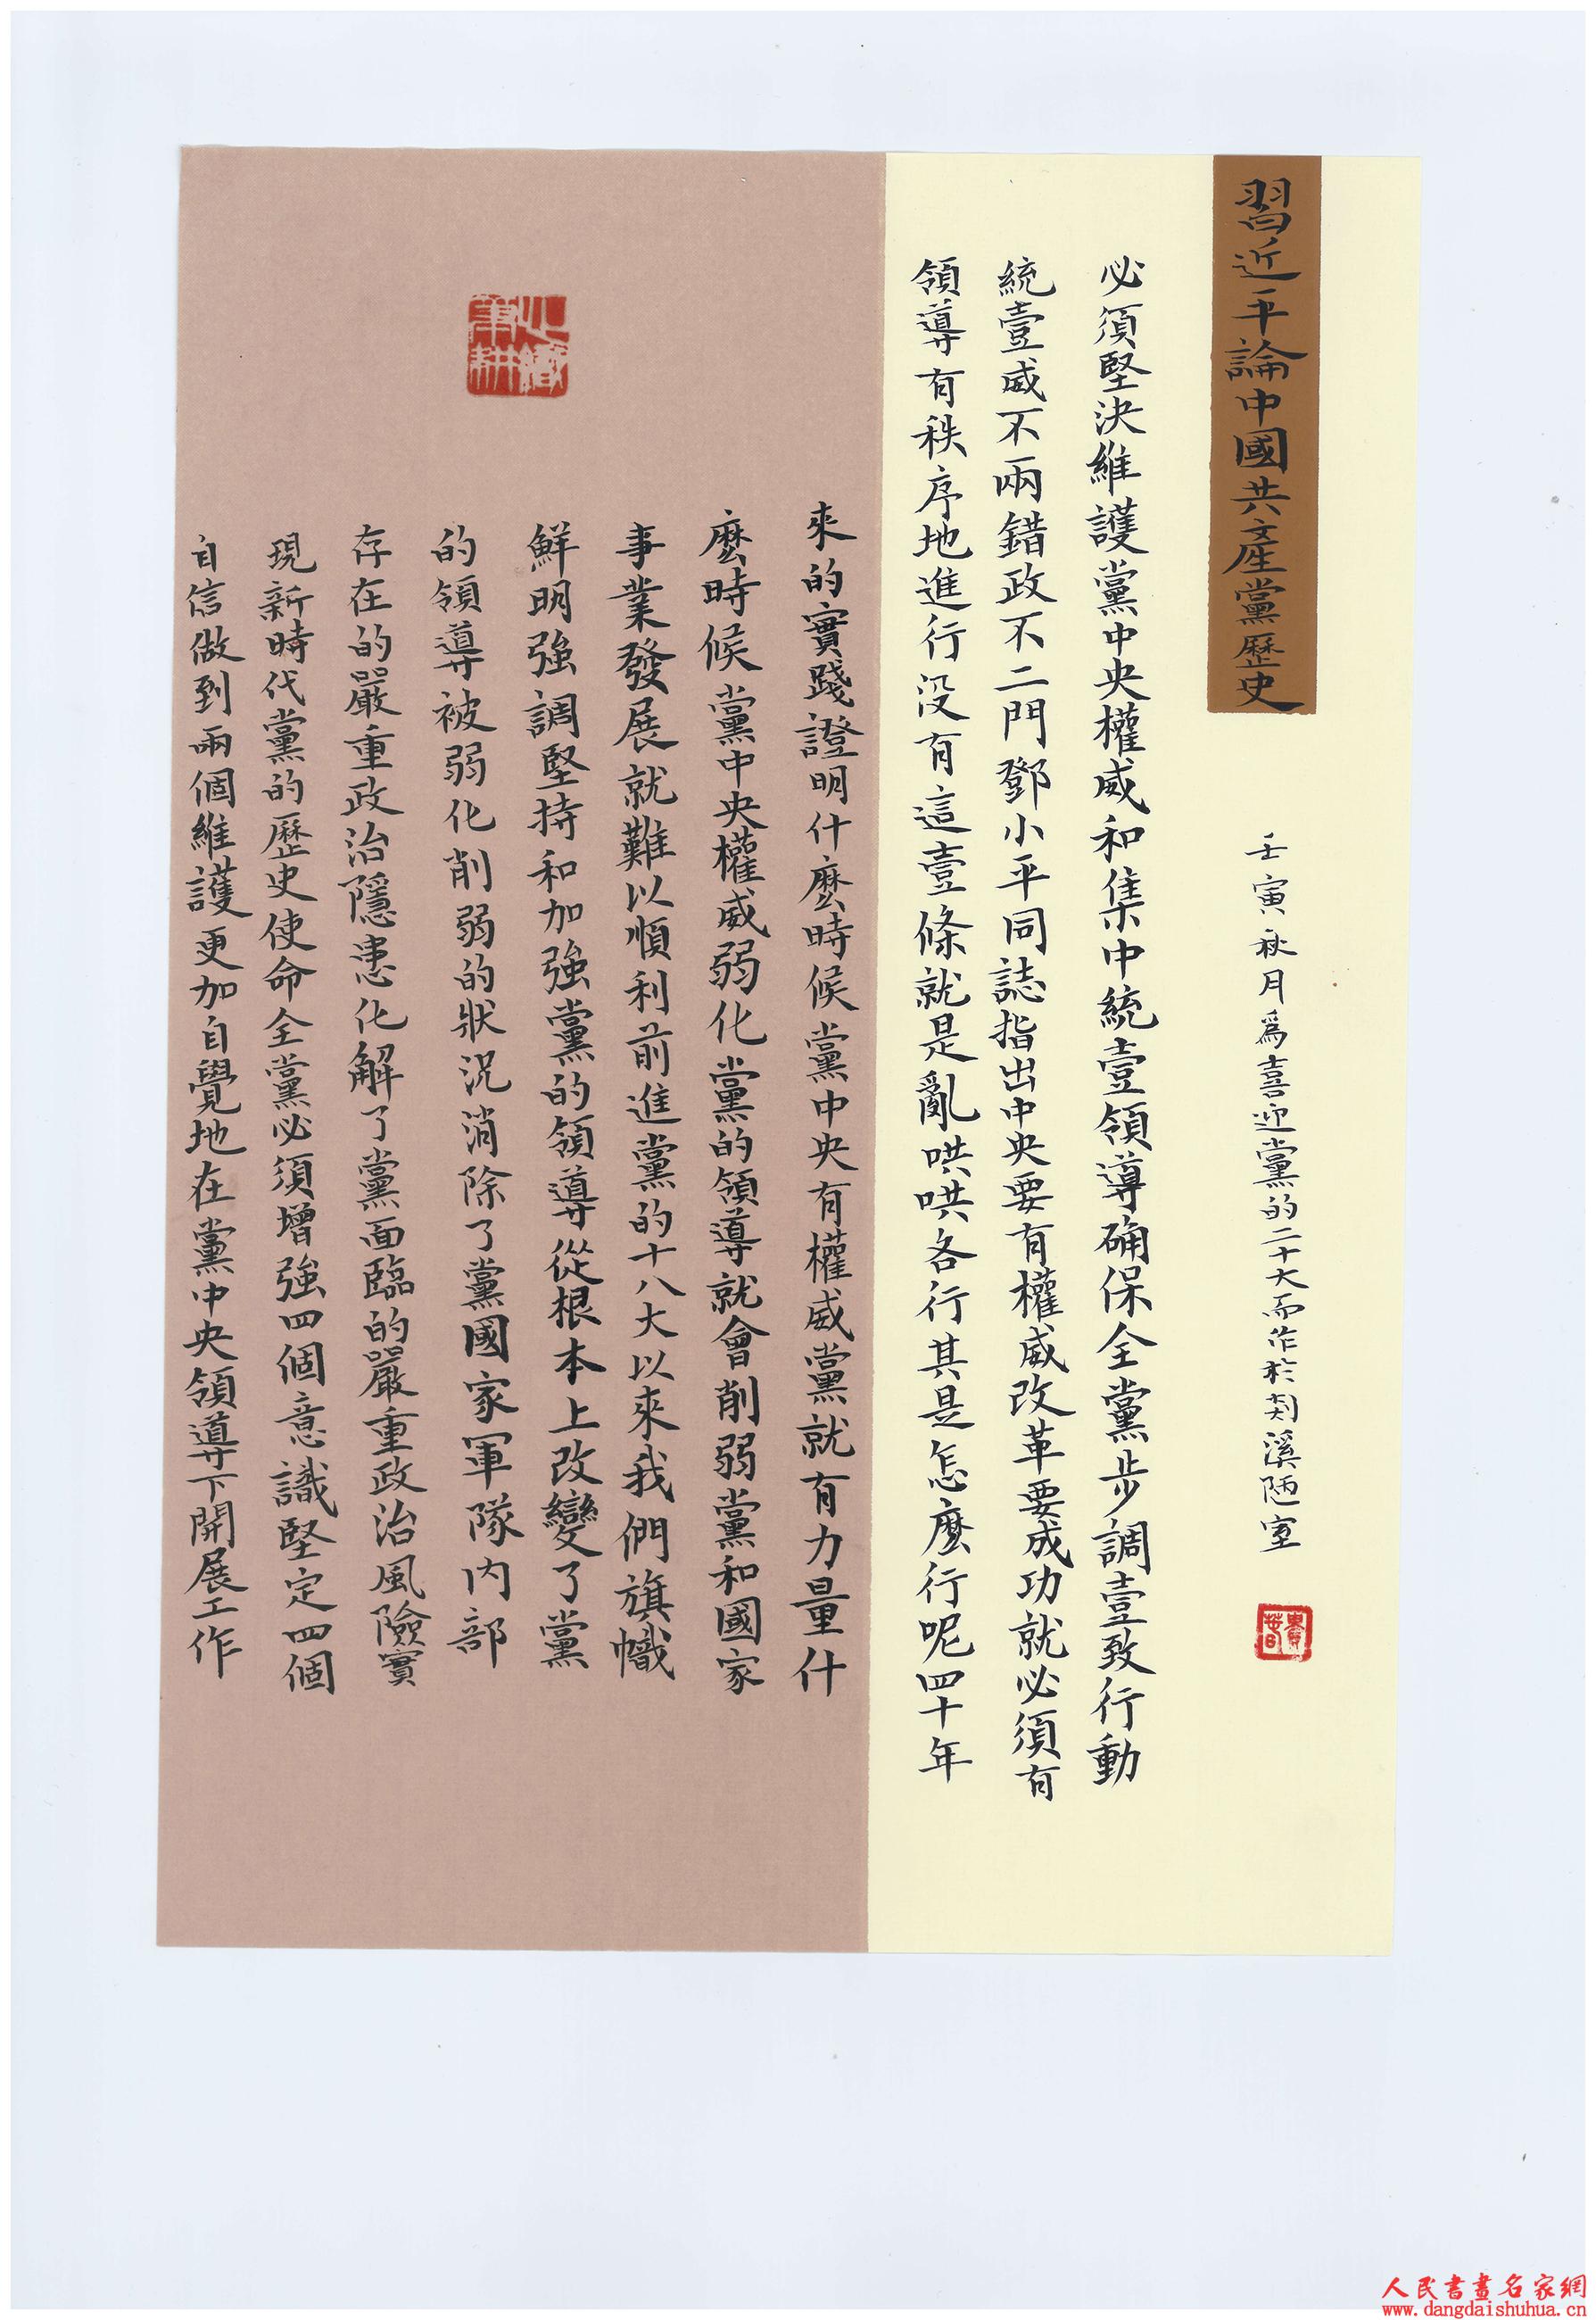 習近平論中國共產黨歷史
壬寅秋月爲喜迎黨的二十大而作於剡溪陋室
必須堅決維護黨中央權威和集中統壹領導確保全黨步調壹致行動
統壹威不兩錯政不二門鄧小平同誌指出中央要有權威改革要成功就必須有
領導有秩序地進行没有這壹條就是亂哄哄各行其是怎麼行呢四十年
來的實踐證明什麼時候黨中央有權威黨就有力量什
麼時候黨中央權威弱化黨的領導就會削弱黨和國家
事業發展就難以順利前進黨的十八大以來我們旗幟
鮮明強調堅持和加強黨的領導從根本上改變了黨
的領導被弱化削弱的狀況消除了黨國家軍隊内部
存在的嚴重政治隱患化解了黨面臨的嚴重政治風險實
現新時代黨的歷史使命全黨必須增強四個意識堅定四個
自信做到兩個維護更加自覺地在黨中央領導下開展工作
人民書畫名家網
www.dangdaishuhua.cn